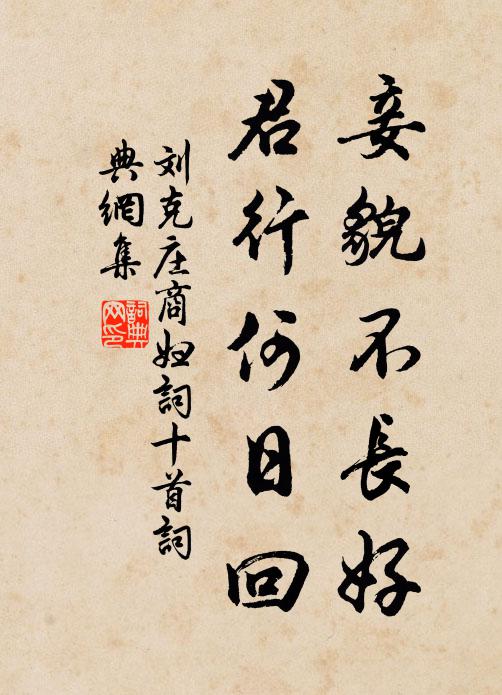 妾貌不長好
君行何日回
刘克庄商妇詞十首詞
典網集
詞典网印